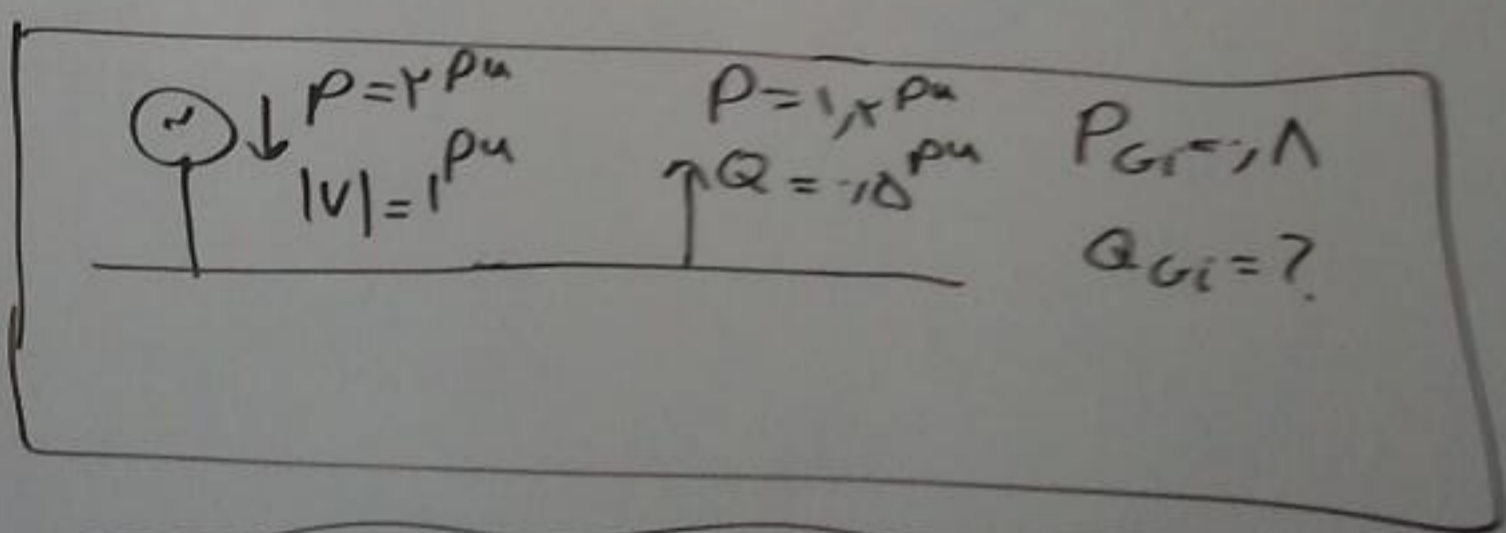 ~ P=۲ pu
|V|=۱ pu
P=۱,۲ pu
Q=۰,۵ pu
PGi=۰,۸
QGi=?